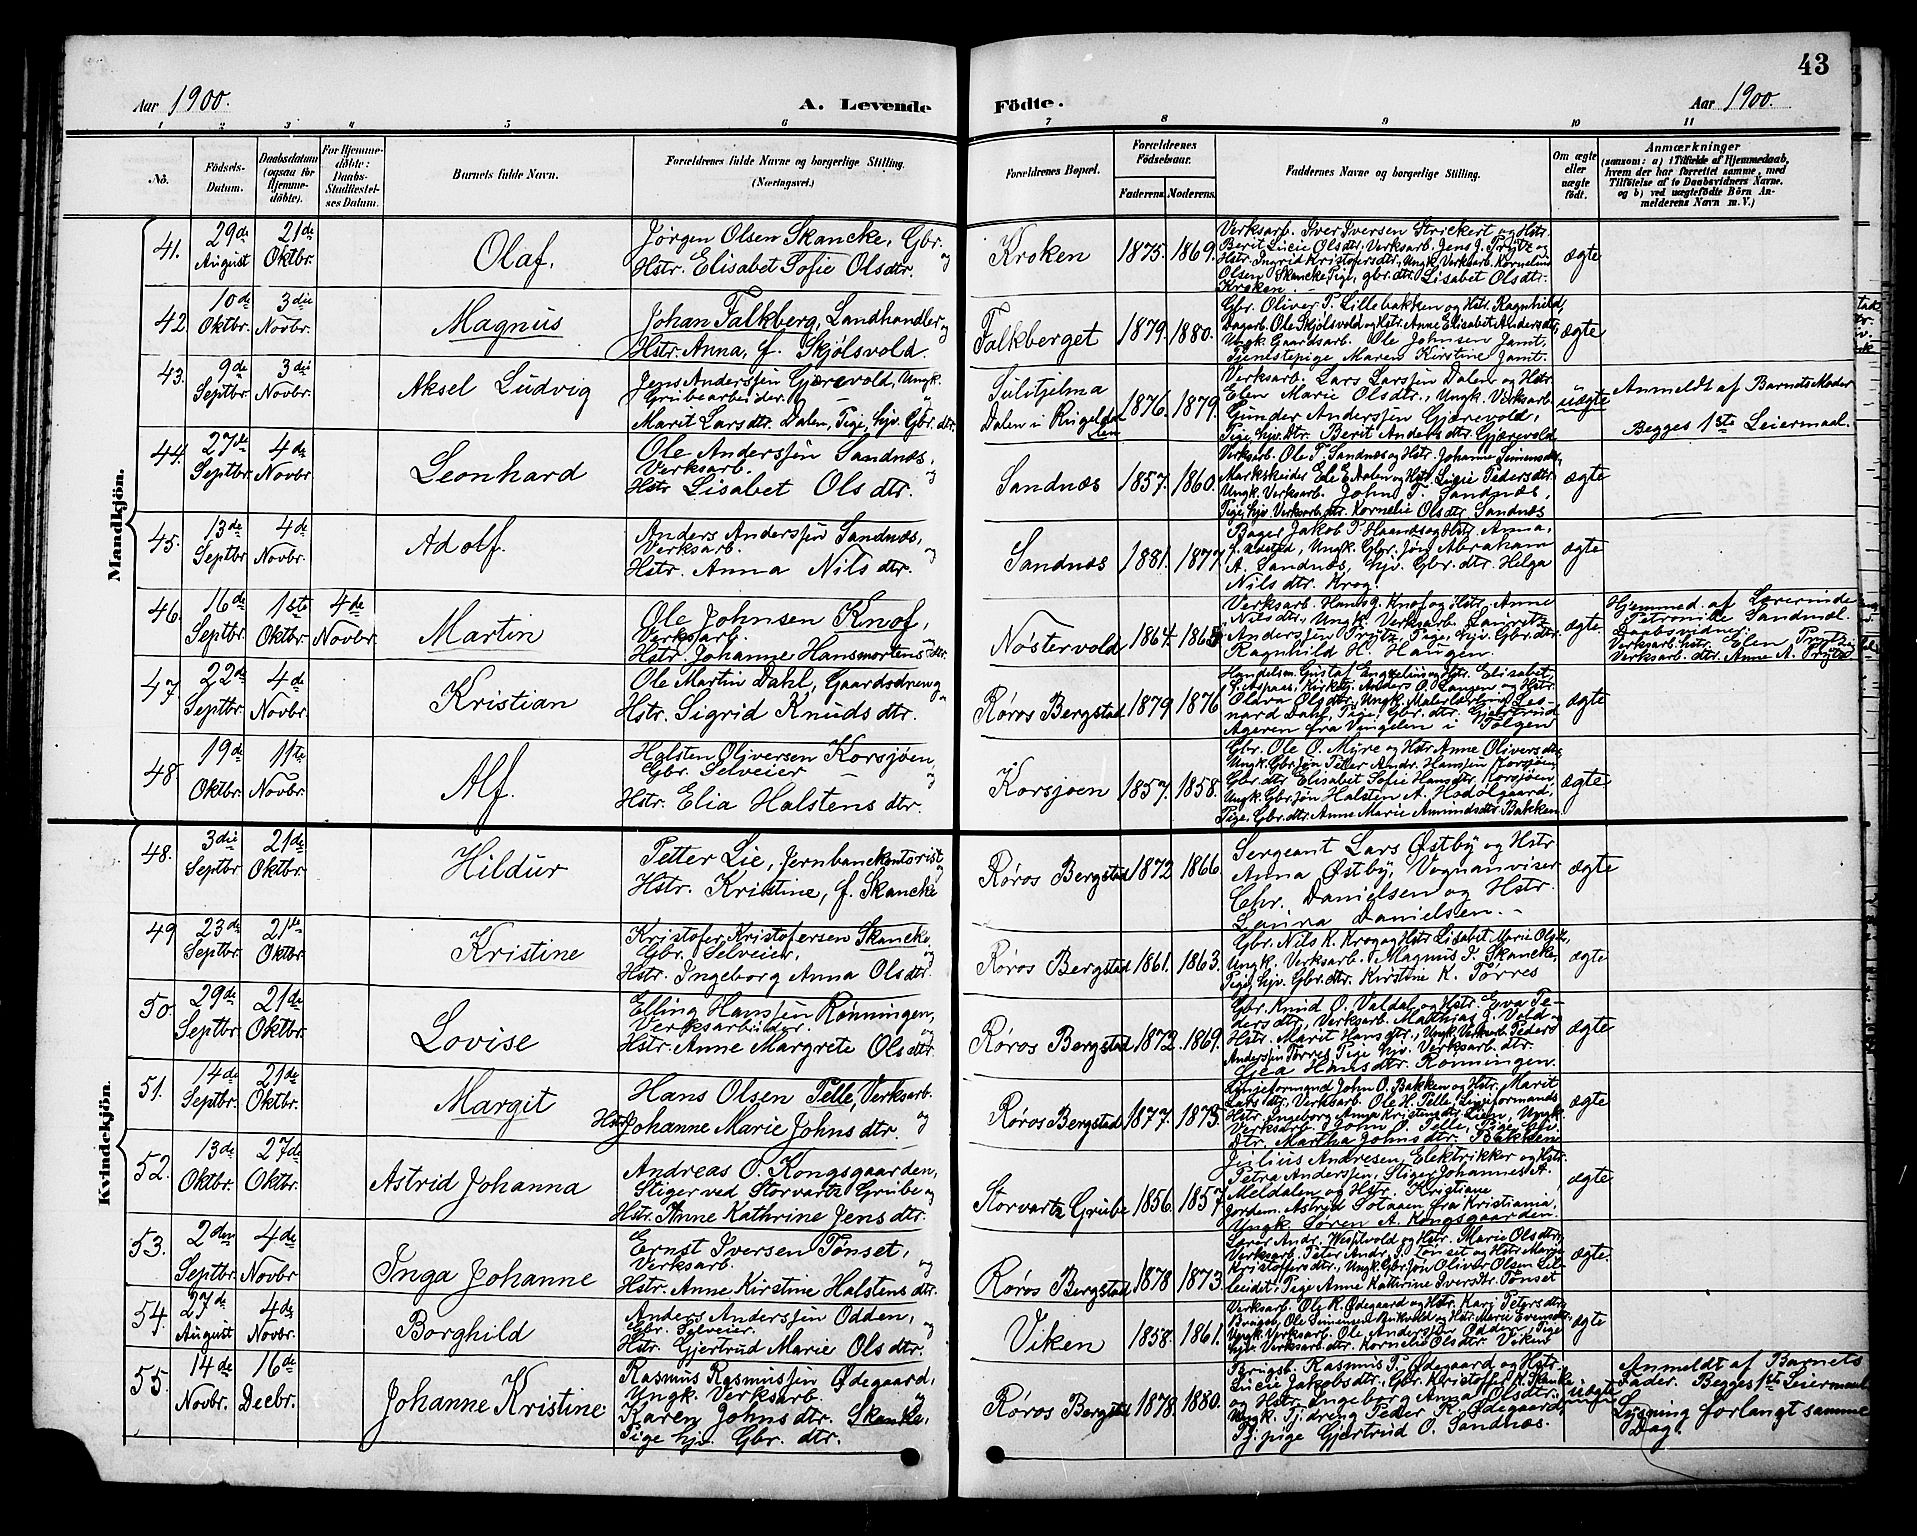 43
Aar 1900.
A. Levende
Födte.
Aar 1900.
1 2 3 4 5 6 7 8 9 10 11
No.
Födsels-
Datum.
Daabsdatum
(ogsaa for
Hjemme-
döbte).
For Hjemme-
döbte:
Daabs-
Stadfæstel-
ses Datum.
Barnets fulde Navn.
Forældrenes fulde Navne og borgerlige Stilling.
(Næringsvei.)
Forældrenes Bopæl.
Forældrenes
Födselsaar.
Faderens. Moderens.
Faddernes Navne og borgerlige Stilling.
Om ægte
eller
uægte
födt.
Anmærkninger
(saasom: a) i Tilfælde af Hjemmedaab,
hvem der har forrettet samme, med
Tilföielse af to Daabsvidners Navne.
og b) ved uægtefödte Börn An-
melderens Navn m. V.)
Mandkjön.
41.
29de
August
21de
Oktbr.
Olaf.
Jørgen Olsen Skancke, Gbr.
og
Hstr. Elisabet Sofie Olsdtr.
Kroken
1875. 1869.
Verksarb. Iver Iversen Strickert og Hstr.
Berit Lucie Olsdtr., Verksarb. Jens J. Prytz og
Hstr. Ingrid Kristofersdtr., Ungk. Verksarb. Kornelius
Olsen Skancke, Pige, gbr.dtr. Lisabet Olsdtr.
Kroken.
ægte
42.
10de
Oktbr.
3die
Novbr.
Magnus
Johan Falkberg, Landhandler
og
Hstr. Anna, f. Skjølsvold.
Falkberget
1879. 1880.
Gbr. Oliver P. Lillebakken og Hstr. Ragnhild,
Dagarb. Ole Skjølsvold og Hstr. Anne Elisabet Andersdtr.,
Ungk. Gaardsarb. Ole Johnsen Jamt.
Tjenestepige Maren Kirstine Jamt.
ægte
43.
9de
Septbr.
3die
Novbr.
Aksel Ludvig
Jens Anderssen Gjærevold, Ungk.
Grubearbeider. og
Marit Larsdtr. Dalen, Pige, hjv. Gbr. dtr.
Sulitjelma
Dalen i Rugelda-
len
1876. 1879.
Verksarb. Lars Larssen Dalen og Hstr.
Elen Marie Olsdtr., Ungk. Verksarb.
Gunder Anderssen Gjærevold,
Pige, hjv. Dtr. Berit Andersdtr. Gjærevold
uægte
Anmeldt af Barnets Moder
Begges 1ste Leiermaal.
44.
27de
Septbr.
4de
Novbr.
Leonhard
Ole Anderssen Sandnæs,
Verksarb. og
Hstr Lisabet Olsdtr.
Sandnæs
1857. 1860.
Verksarb. Ole T. Sandnæs og Hstr. Johanne Simensdtr.,
Markskeider Ele E. Dalen og Hstr. Lucie Pedersdtr.
Ungk. Verksarb. John T. Sandnæs,
Pige, hjv. Verksarb. dtr. Kornelie Olsdtr. Sandnæs
ægte
45.
13de
Septbr.
4de
Novbr.
Adolf.
Anders Anderssen Sandnæs,
Verksarb. og
Hstr. Anna Nilsdtr.
Sandnæs
1881. 1877.
Bager Jakob P. Haanæs og Hstr. Anna,
Ungk. Gbr. Jøn Abraham
A. Sandnæs, hjv. Gbr. dtr. Helga
Nilsdtr. Krog.
ægte
46.
16de
Septbr.
1ste
Oktbr.
4de
Novbr.
Martin
Ole Johnsen Knof,
Verksarb. og
Hstr. Johanne Hansmortensdtr.
Nøstervold
1864. 1865
Verksarb. Hans J. Knof og Hstr. Anne
Nilsdtr., Ungk. Verksarb. Lauritz
Anderssen Prytz, Pige, hjv. Gbr. dtr.
Ragnhild H. Haugen.
ægte.
Hjemmed. af Lærerinde
Petronille Sandmæl.
Daabsvidner:
Verksarb. hstr. Elen Prytz og
Verksarb. dtr. Anne A. Prytz
47.
22de
Septbr.
4de
Novbr.
Kristian
Ole Martin Dahl, Gaardsdreng
og
Hstr. Sigrid Knudsdtr.
Røros Bergstad
1879. 1876
Handelsm. Gustaf Engzelius og Hstr. Elisabet,
f. Aspaas, Kirketj. Anders O. Langen og Hstr.
Olava Olsdtr., Ungk. Malerlærling Leo-
nard Dahl, Pige, Gbr. dtr. Gjertrud
Ageren fra Vingelen i Tolgen
ægte
48.
19de
Oktbr.
11te
Novbr.
Alf.
Halsten Oliversen Korsjøen,
Gbr. Selveier og
Hstr. Elia Halstensdtr.
Korsjøen
1857. 1858.
Gbr. Ole O. Myre og Hstr. Anne Oliversdtr.,
Ungk. Gbr. søn Peder Andr. Hanssen Korsjøen
Gbr. dtr. Elisabet Sofie Hansdtr. Korsjøen,
Ungk. Gbr. søn Halsten A. Hodölgaard,
Pige, Gbr. dtr. Anne Marie Amundsdtr. Bakken.
ægte
Kvindekjön.
48.
3die
Septbr
21de
Oktbr.
Hildur
Petter Lie, Jernbanekontorist
og
Hstr. Kristine, f. Skancke
Røros Bergstad
1872 1866.
Sergeant Lars Østby og Hstr.
Anna Østby, Vognanviser
Chr. Danielsen og Hstr.
Laura Danielsen.
ægte
49
23de
Septbr
21de
Oktbr.
Kristine
Kristofer Kristofersen Skancke,
Gbr. Selveier, og
Hstr. Ingeborg Anna Olsdtr.
Røros Bergstad
1861. 1863.
Gbr. Nils K. Krog og Hstr. Lisabet Marie Olsdtr.,
Ungk. Verksarb. Magnus J. Skancke,
Pige, hjv. Gbr. dtr. Kirstine K. Tørres
ægte
50.
29de
Septbr.
21de
Oktbr.
Lovise
Elling Hanssen Rønningen,
Verksarbeider. og
Hstr. Anne Margrete Olsdtr.
Røros Bergstad
1872. 1869.
Gbr. Knud O. Valdal og Hstr. Eva Pe-
dersdtr., Verksarb. Matthias J. Vold og
Hstr. Marit Hansdtr., Ungk. Verksarb. Peder
Anderssen Tørres, Pige, hjv. Verksarb. dtr.
Gea Hansdtr. Rønningen.
ægte
51.
14de
Septbr.
21de
Oktbr.
Margit
Hans Olsen Pelle, Verksarb.
og
Hstr. Johanne Marie Johnsdtr.
Røros Bergstad
1877. 1873.
Linieformand John O. Bakken og Hstr. Marit
Larsdtr., Verksarb. Ole H. Pelle, Linieformands
Hstr. Ingeborg Anna Kristensdtr. Lien, Ungk.
Verksarb. John O. Pelle, Pige, hjv.
Dtr. Martha Johnsdtr. Bakken
ægte
52.
13de
Oktbr.
27de
Oktbr.
Astrid Johanna
Andreas O. Kongsgaarden,
Stiger ved Storvartz Grube og
Hstr. Anne Kathrine Jensdtr.
Storvartz Grube
1856. 1857.
Julius Andresen, Elektrikker og Hstr.
Petra Anderssen, Stiger Johannes A.
Meldalen og Hstr. Kristiane
Jordem. Astrid Solaaen fra Kristiania,
Ungk. Søren A. Kongsgaarden.
ægte
53.
2den
Septbr.
4de
Novbr
Inga Johanne
Ernst Iversen Tønset,
Verksarb. og
Hstr. Anne Kirstine Halstensdtr.
Røros Bergstad
1878 1873.
Lærer Andr. Westvold og Hstr. Marie Olsdtr.,
Verksarb. Peter Andr. J. Tønset og Hstr. Maria
Kristoffersdtr., Ungk. Gbr. søn Oliver Olsen Lil-
leudet. Pige Anne Kathrine Iversdtr. Tønset
ægte.
54.
27de
August
4de
Novbr.
Borghild
Anders Anderssen Odden,
Gbr. Selveier. og
Hstr. Gjertrud Marie Olsdtr.
Viken
1858. 1861.
Verksarb. Ole K. Ødegaard og Hstr. Kari Petersdtr.,
Ole Simensen Bukvold og Hstr. Marie Evensdtr.
Ungk. Verksarb. Ole Anderssen Odden, Pige
hjv. Verksarb. dtr. Kornelie Olsdtr. Viken
ægte
55.
14de
Novbr.
16de
Decbr.
Johanne Kristine.
Rasmus Rasmussen Ødegaard,
Ungk. Verksarb. og
Karen Johnsdtr. Skancke,
Pige hjv. Gbr. dtr.
Røros Bergstad
1878. 1880.
Brugsb. Rasmus P. Ødegaard og Hstr.
Lucie Jakobsdtr., Gbr. Kristoffer K. Skancke
og Hstr. Ingeborg Anna Olsdtr.
Ungk. Tj.dreng Peder R. Ødegaard,
Tj.pige Gjertrud O. Sandnæs.
uægte
Anmeldt af Barnets
Fader. Begges 1ste Leiermaal
Lysning forlangt samme
Dag.